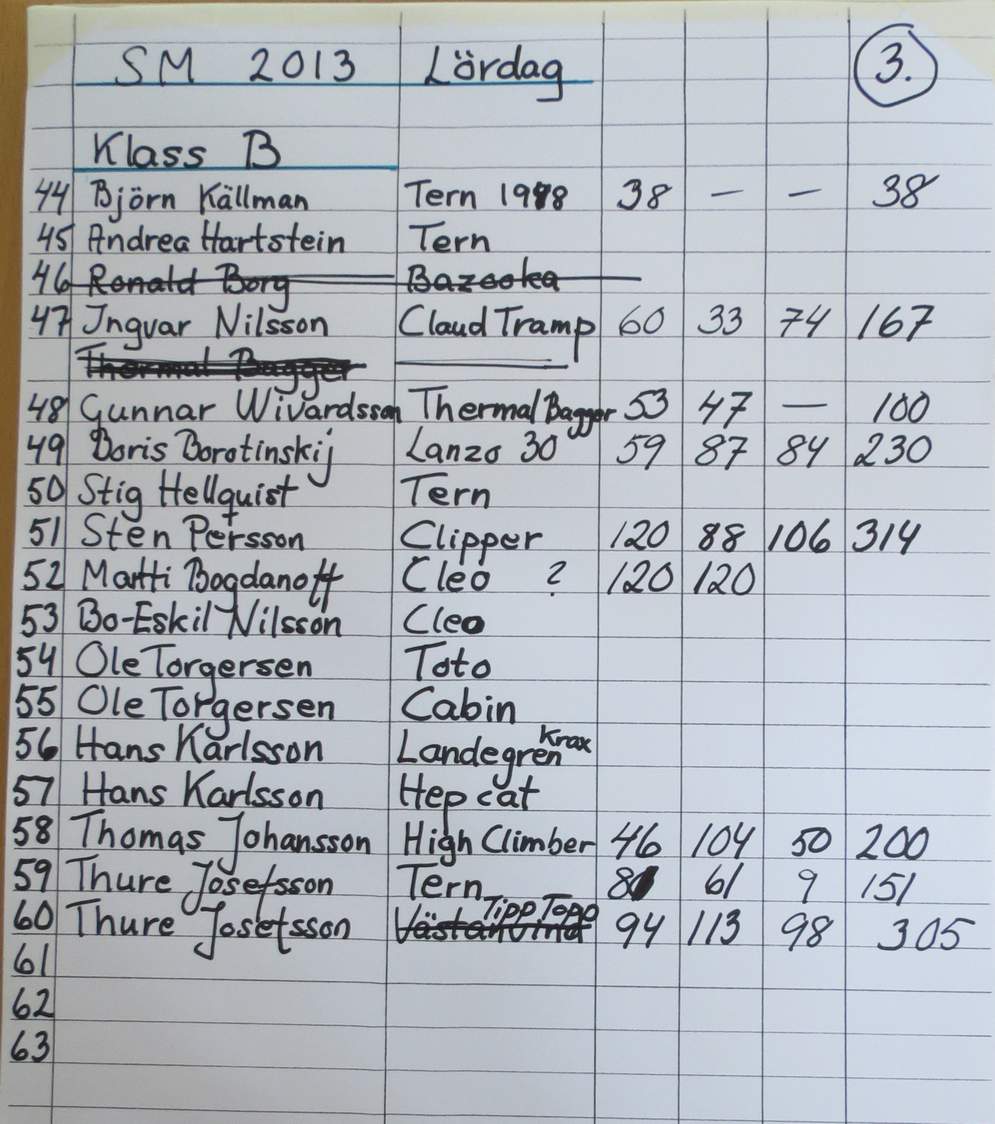 SM 2013 Lördag 3.
Klass B
44 Björn Källman Tern 1948 38 — — 38
45 Andrea Hartstein Tern
46 Ronald Borg Bazooka
47 Ingvar Nilsson Claud Tramp 60 33 74 167
Thermal Bagger
48 Gunnar Wivardsson Thermal Bagger 53 47 — 100
49 Boris Borotinskij Lanzo 30 59 87 84 230
50 Stig Hellquist Tern
51 Sten Persson Clipper 120 88 106 314
52 Matti Bogdanoff Cleo ? 120 120
53 Bo-Eskil Nilsson Cleo
54 Ole Torgersen Toto
55 Ole Torgersen Cabin
56 Hans Karlsson Landegren Krax
57 Hans Karlsson Hep cat
58 Thomas Johansson High Climber 46 104 50 200
59 Thure Josefsson Tern 81 61 9 151
60 Thure Josefsson Västanvind Tipp Topp 94 113 98 305
61
62
63